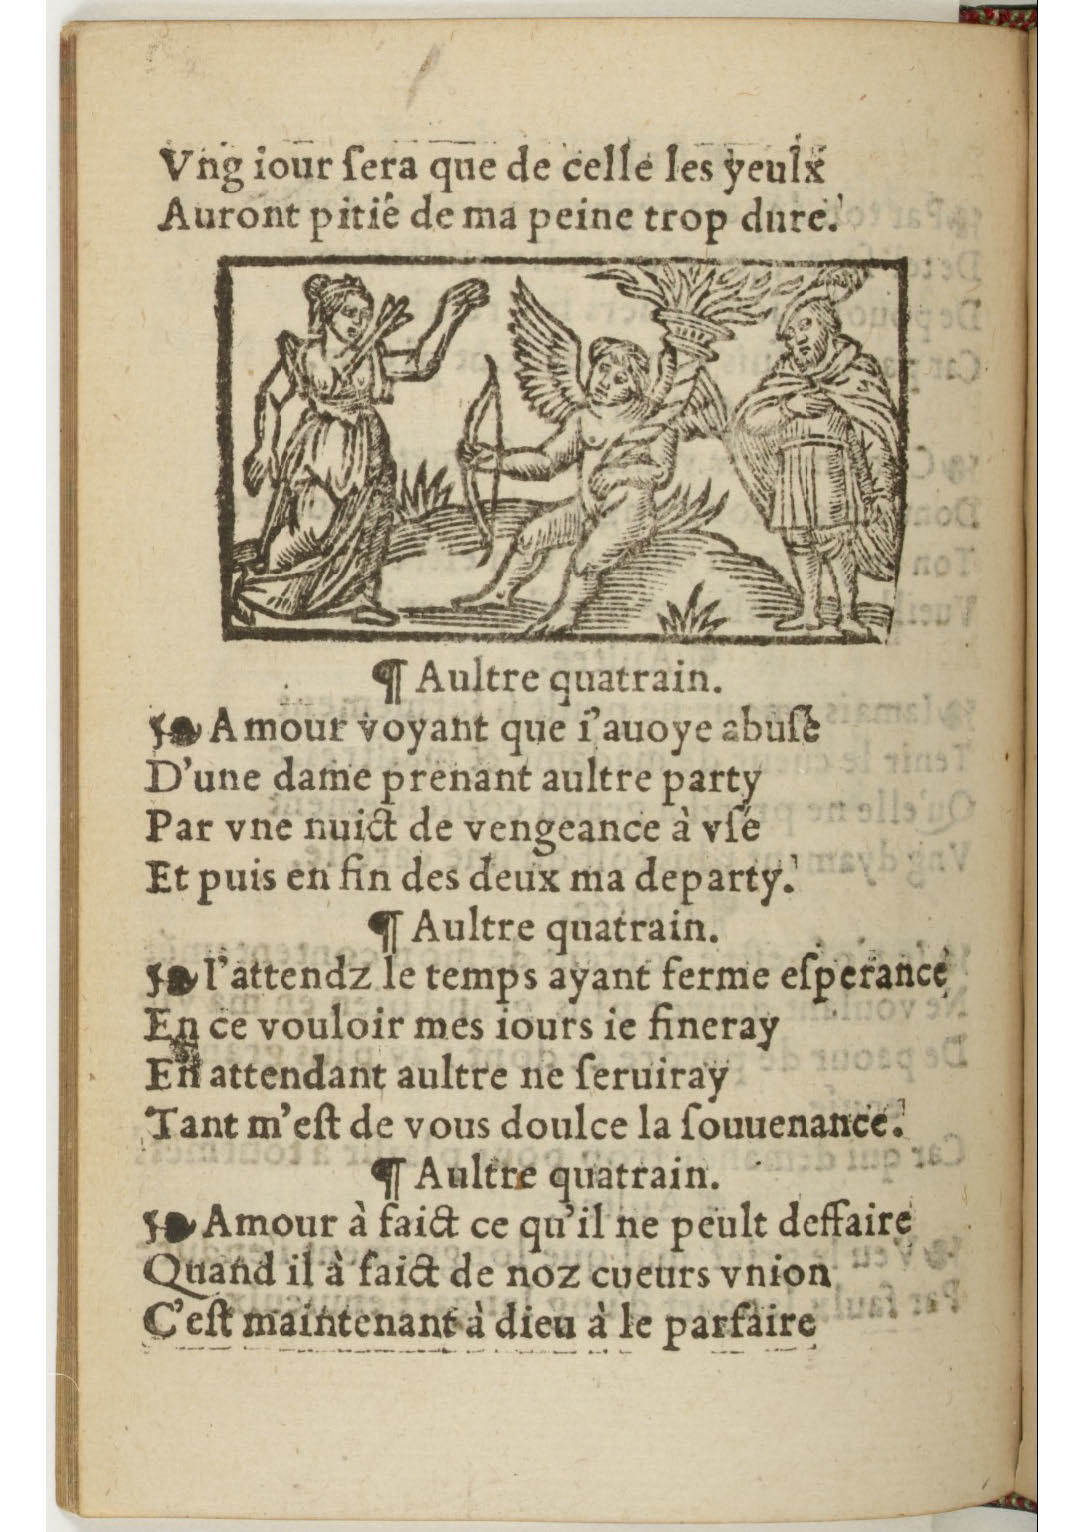 Vng iour ſera que de celle les yeulx
Auront pitié de ma peine trop dure.
¶ Aultre quatrain.
❧ Amour voyant que i'auoye abuſé
D'une dame prenant aultre party
Par vne nuict de vengeance à vſé
Et puis en fin des deux ma departy.
¶ Aultre quatrain.
❧ I'attendz le temps ayant ferme eſperance
En ce vouloir mes iours ie fineray
En attendant aultre ne ſeruiray
Tant m'eſt de vous doulce la ſouuenance.
¶ Aultre quatrain.
❧ Amour à faict ce qu'il ne peult deffaire
Quand il à faict de noz cueurs vnion
C'eſt maintenant à dieu à le parfaire